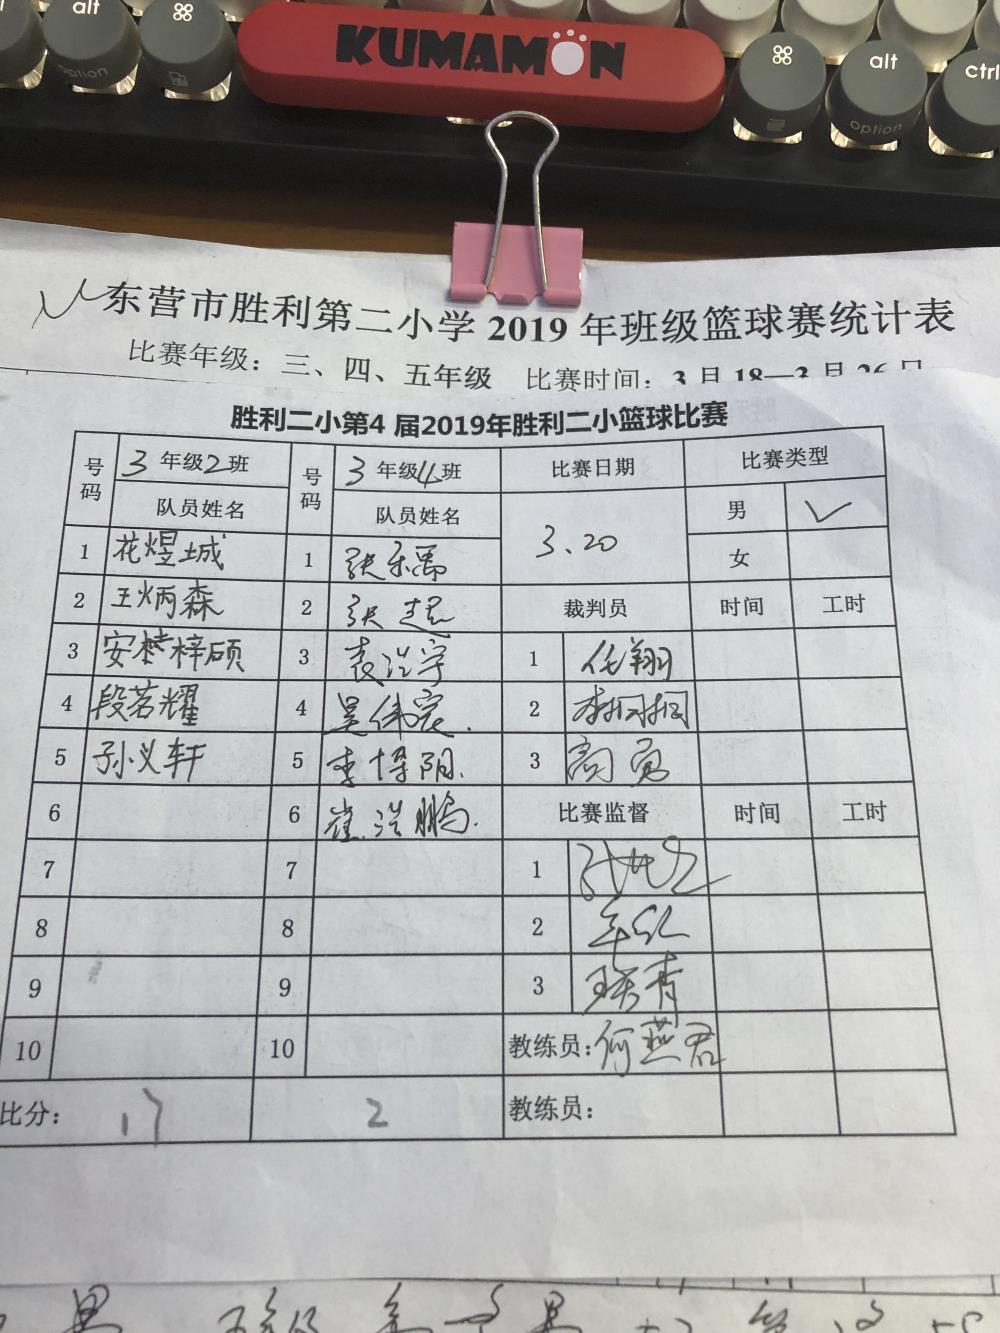 alt
⌘
KUMAMON
⌘
alt
ctrl
option
option
东营市胜利第二小学2019年班级篮球赛统计表
比赛年级：三、四、五年级 比赛时间：3月18—3月26日
胜利二小第4 届2019年胜利二小篮球比赛
号码 3年级2班 号码 3年级4班 比赛日期 比赛类型
队员姓名 队员姓名 3.20 男 ✓
1 花煜城 1 张乐禹 女
2 王炳森 2 张赵 裁判员 时间 工时
3 安梓硕 3 袁浩宇 1 任翔
4 段茗耀 4 吴伟宸. 2
5 孙义轩 5 李博阳. 3 商勇
6 6 崔浩鹏. 比赛监督 时间 工时
7 7 1
8 8 2
9 9 3
10 10 教练员：何燕君
比分： 17 2 教练员：